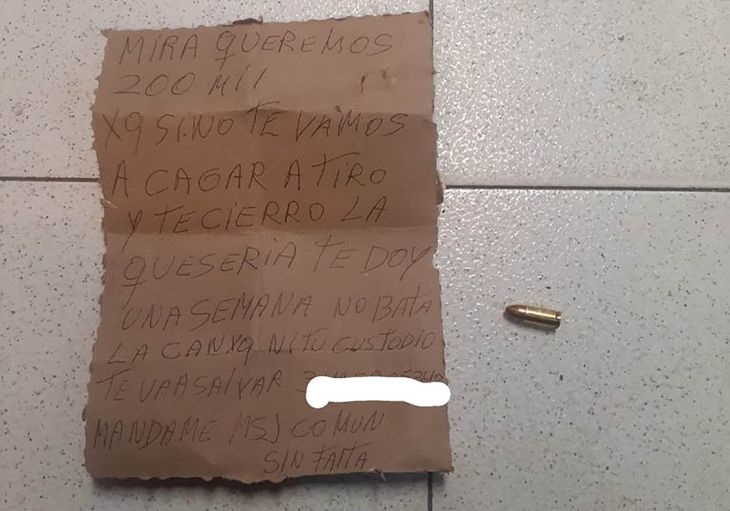 MIRA QUEREMOS
200 MIL
XQ SI.NO TE VAMOS
A CAGAR A TIRO
Y TE CIERRO LA
QUESERIA TE DOY
UNA SEMANA NO BATA
LA CANXQ NI TU CUSTODIO
TE VA A SALVAR
MANDAME MSJ COMUN
SIN FALTA